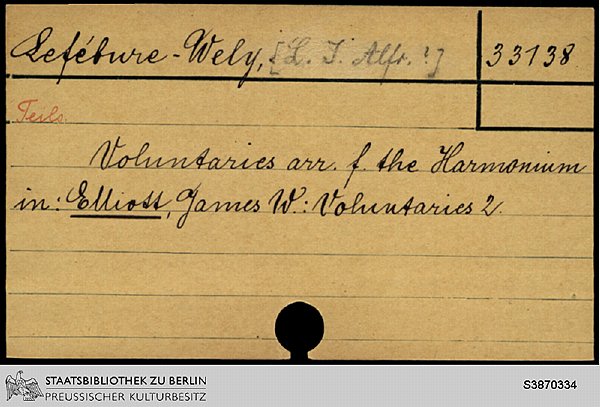 Lefébure-Wely, [L. J. Alfr. ?] 33138
Teils
Voluntaries arr. f. the Harmonium
in: Elliott, James W.: Voluntaries 2.
STAATSBIBLIOTHEK ZU BERLIN
PREUSSISCHER KULTURBESITZ
S3870334